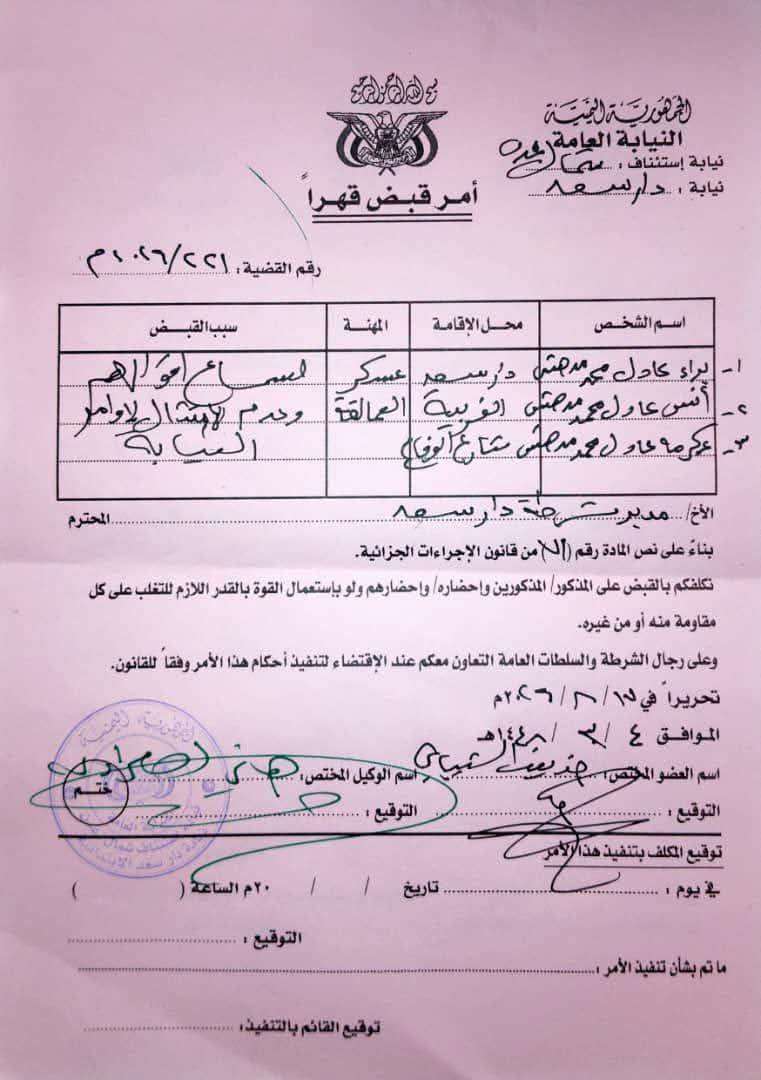 بسم الله الرحمن الرحيم
الجمهورية اليمنية
النيابة العامة
نيابة إستئناف : شمال عدن
نيابة : دار سعد
أمر قبض قهراً
رقم القضية : ٢٢١/٢٠٢٦م
اسم الشخص محل الإقامة المهنة سبب القبض
١- براء عادل محمد مدهش دار سعد عسكر لسماع اقوالهم
٢- أنس عادل محمد مدهش الغربية العمالقة وعدم الامتثال لاوامر
٣- عكرمه عادل محمد مدهش شارع النيابة
الأخ/ مدير شرطة دار سعد المحترم
بناءً على نص المادة رقم ( ) من قانون الإجراءات الجزائية.
نكلفكم بالقبض على المذكور/ المذكورين وإحضاره/ وإحضارهم ولو بإستعمال القوة بالقدر اللازم للتغلب على كل
مقاومة منه أو من غيره.
وعلى رجال الشرطة والسلطات العامة التعاون معكم عند الإقتضاء لتنفيذ أحكام هذا الأمر وفقاً للقانون.
تحريراً في / / ٢٠٢٦م
الموافق ٤ / ٣ / ١٤٤٨هـ
اسم العضو المختص : اسم الوكيل المختص : هاني
التوقيع : التوقيع :
ختم
توقيع المكلف بتنفيذ هذا الأمر
في يوم : تاريخ / / ٢٠م الساعة ( )
التوقيع :
ما تم بشأن تنفيذ الأمر :
توقيع القائم بالتنفيذ :